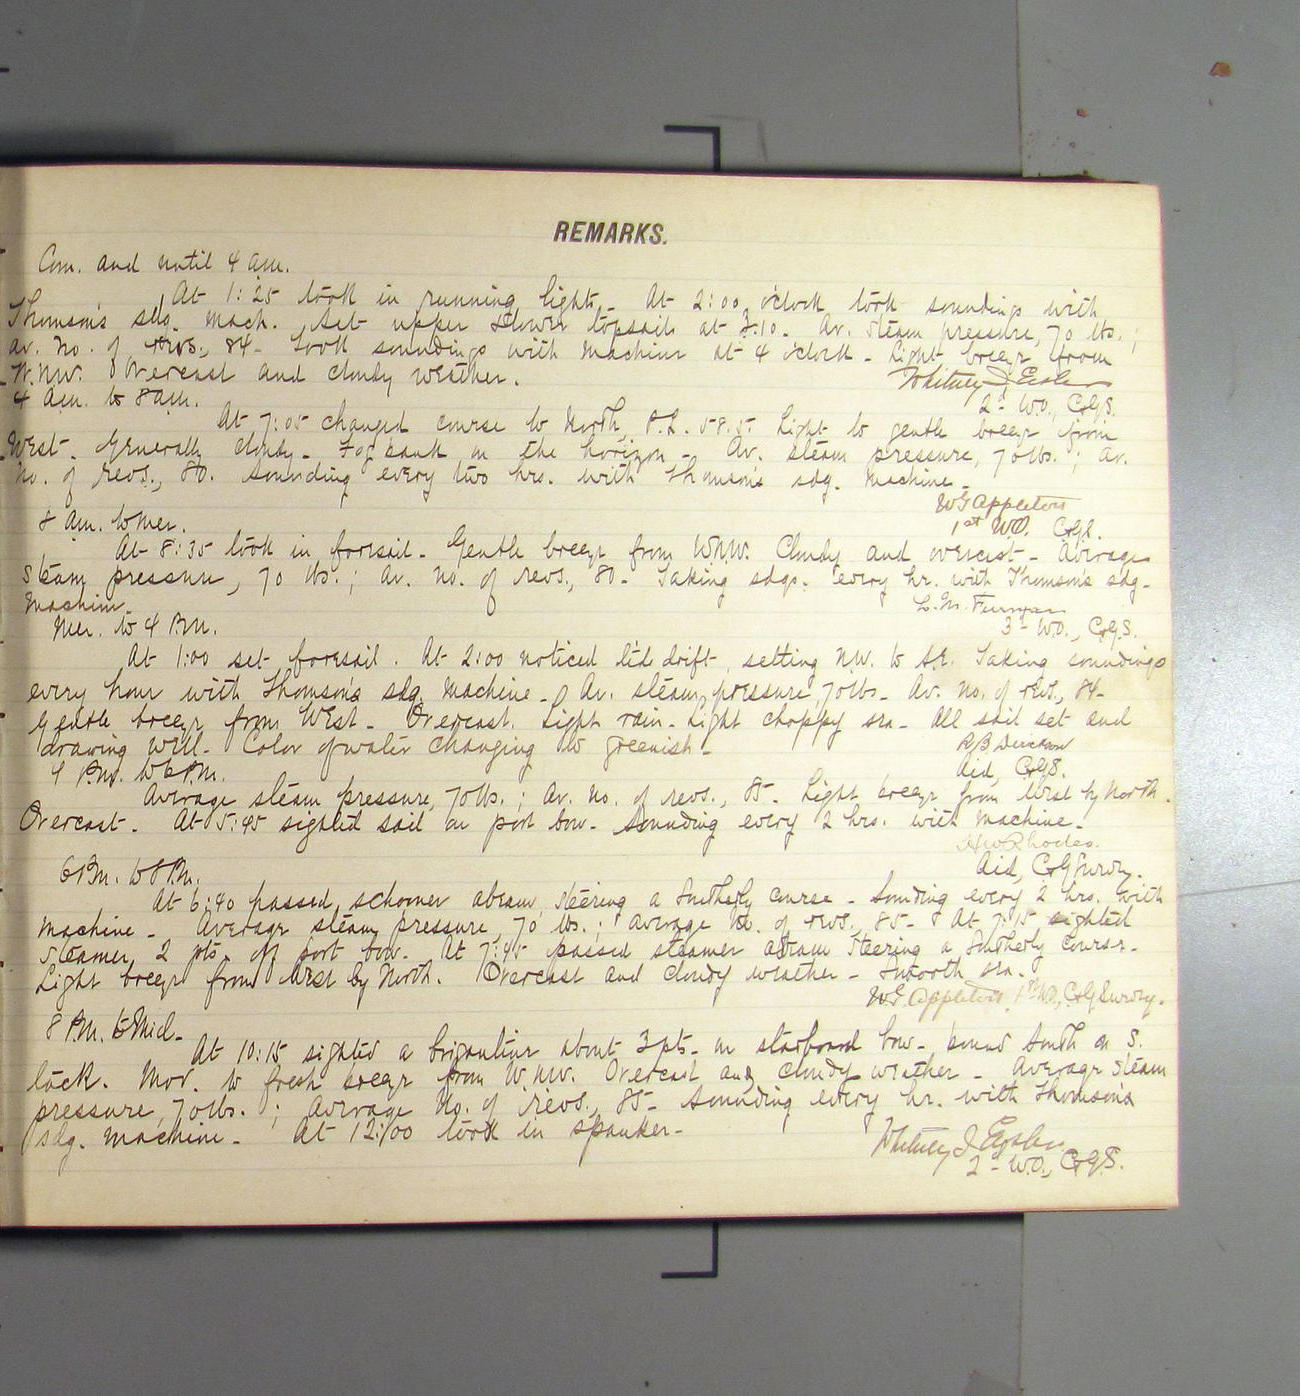 REMARKS.
Com. and until 4 a.m.
At 1:25 took in running lights. At 2:00 o'clock took soundings with
Thomson's sdg. mach. Set upper & lower topsails at 3:10. Av. steam pressure, 70 lbs.;
av. no. of revs., 84. Took soundings with machine at 4 o'clock. Light breeze from
W.N.W. Overcast and cloudy weather.
Whitney I. Eisler
2d W.O., C&GS.
4 a.m. to 8 a.m.
At 7:05 changed course to North, P.L. 58.5. Light to gentle breeze from
West. Generally cloudy. Fog bank on the horizon. Av. steam pressure, 70 lbs.; av.
no. of revs., 80. Sounding every two hrs. with Thomson's sdg. machine.
W G Appleton
1st W.O. C&GS.
8 a.m. to mer.
At 8:35 took in foresail. Gentle breeze from W.N.W. Cloudy and overcast. Average
steam pressure, 70 lbs.; av. no. of revs., 80. Taking sdgs. every hr. with Thomson's sdg.
machine.
L. M. Furman
3d W.O., C&GS.
Mer. to 4 P.M.
At 1:00 set foresail. At 2:00 noticed tide drift, setting N.W. to S.E. Taking soundings
every hour with Thomson's sdg. machine. Av. steam pressure, 70 lbs. Av. no. of revs., 84.
Gentle breeze from West. Overcast. Light rain. Light choppy sea. All sail set and
drawing well. Color of water changing to greenish.
R B Derickson
Aid, C&GS.
4 P.M. to 6 P.M.
Average steam pressure, 70 lbs.; av. no. of revs., 85. Light breeze from West by North.
Overcast. At 5:45 sighted sail on port bow. Sounding every 2 hrs. with machine.
H W Rhodes.
Aid, C&G Survey.
6 P.M. to 8 P.M.
At 6:40 passed schooner abeam, steering a Southerly course. Sounding every 2 hrs. with
machine. Average steam pressure, 70 lbs.; average no. of revs., 85. At 7:15 sighted
steamer 2 pts. off port bow. At 7:45 passed steamer abeam steering a Southerly course.
Light breeze from West by North. Overcast and cloudy weather. Smooth sea.
W G Appleton, 1st W.O., C&G Survey.
8 P.M. to Mid.
At 10:15 sighted a brigantine about 3 pts. on starboard bow, bound South on S.
tack. Mod. to fresh breeze from W.N.W. Overcast and cloudy weather. Average steam
pressure, 70 lbs.; average no. of revs., 85. Sounding every hr. with Thomson's
sdg. machine. At 12:00 took in spanker.
Whitney I. Eisler
2d W.O., C&GS.